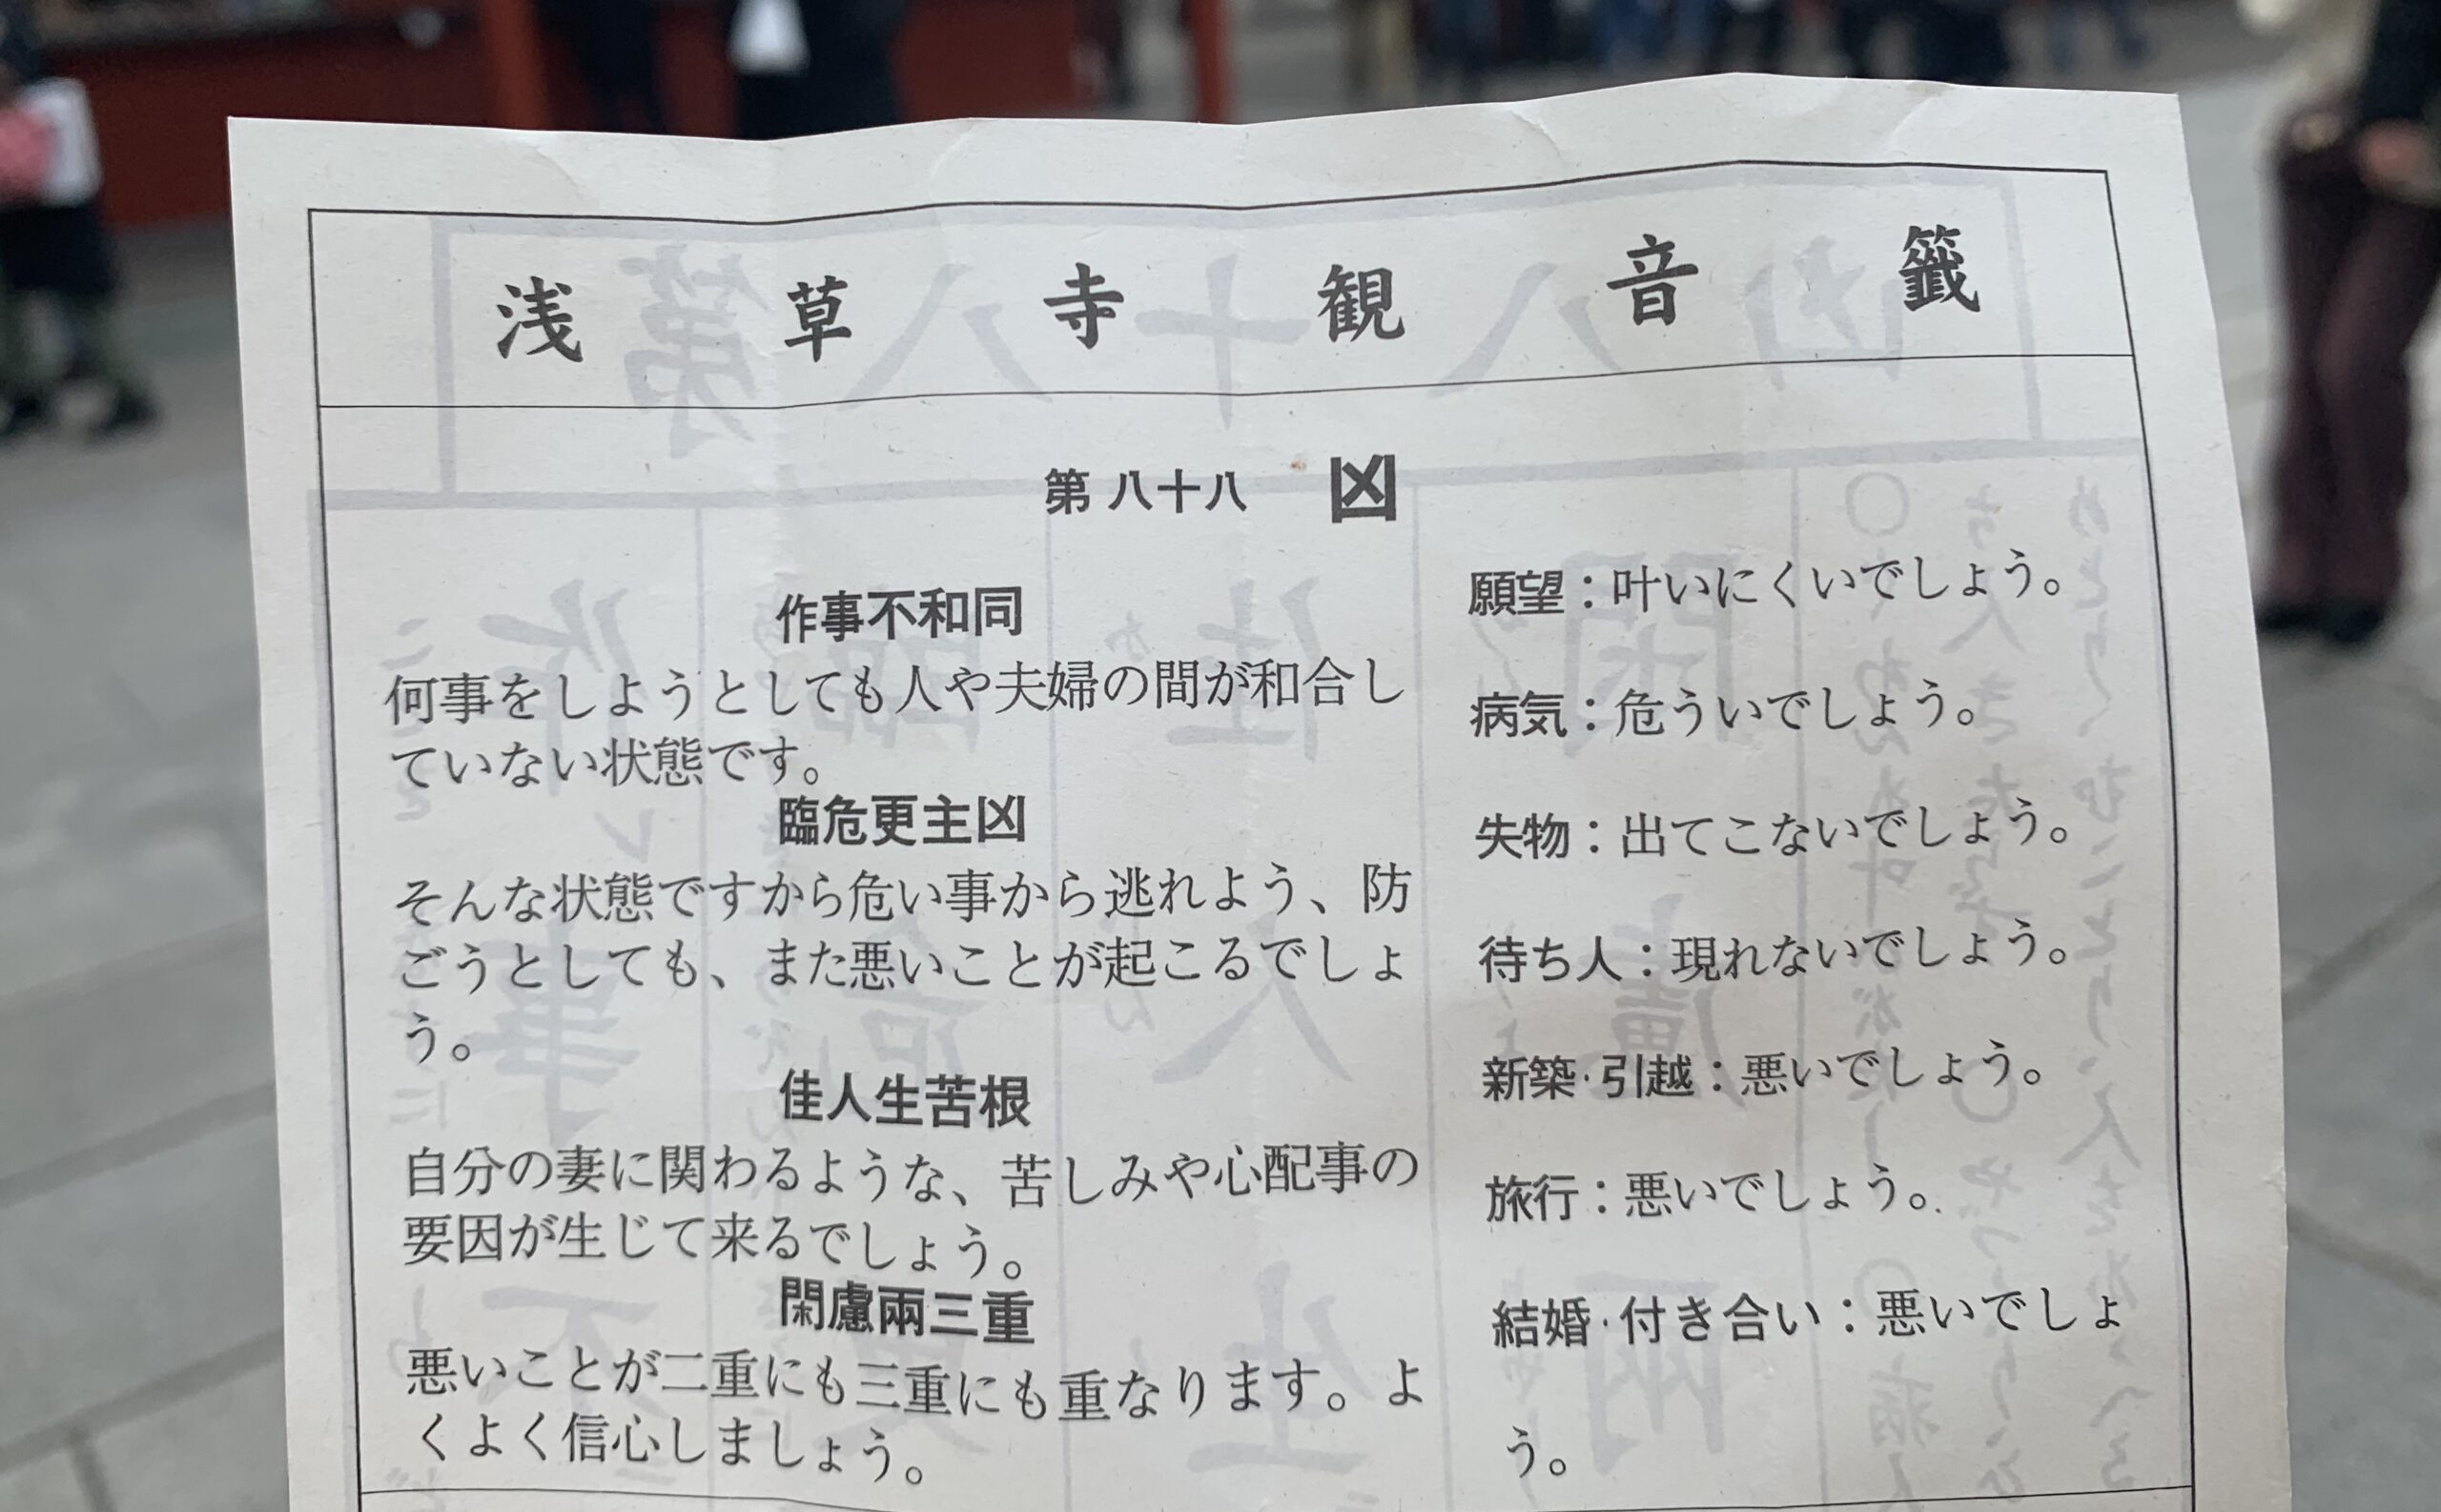 浅草寺観音籤
第八十八 凶
作事不和同
何事をしようとしても人や夫婦の間が和合し
ていない状態です。
臨危更主凶
そんな状態ですから危い事から逃れよう、防
ごうとしても、また悪いことが起こるでしょ
う。
佳人生苦根
自分の妻に関わるような、苦しみや心配事の
要因が生じて来るでしょう。
閑慮兩三重
悪いことが二重にも三重にも重なります。よ
くよく信心しましょう。
願望：叶いにくいでしょう。
病気：危ういでしょう。
失物：出てこないでしょう。
待ち人：現れないでしょう。
新築·引越：悪いでしょう。
旅行：悪いでしょう。
結婚·付き合い：悪いでしょ
う。